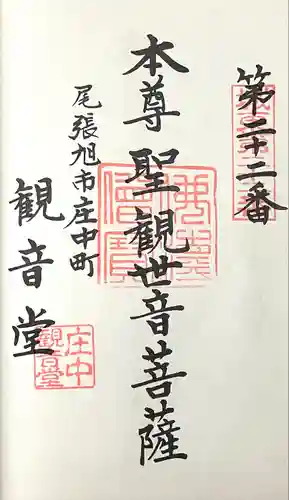 第二十二番
本尊 聖観世音菩薩
尾張旭市庄中町
観音堂
庄中
観音堂